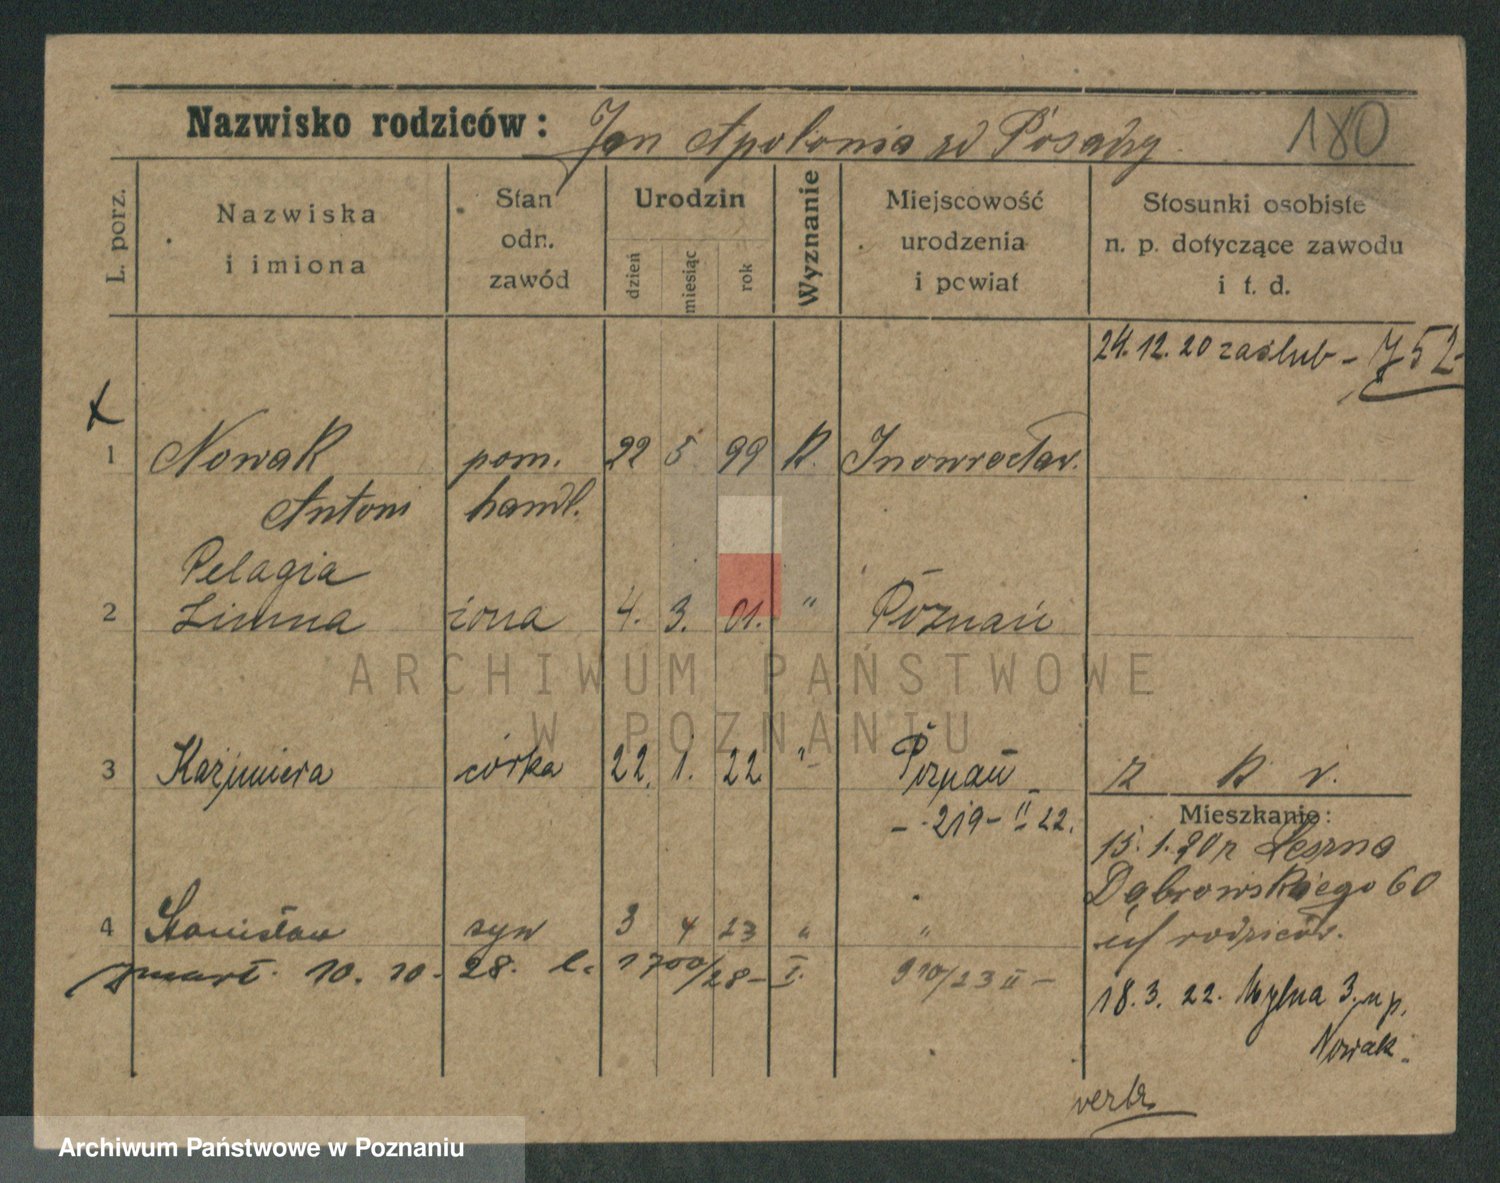 Nazwisko rodziców: Jan Apolonia zd Posadzy 180
L. porz.
Nazwiska
i imiona
Stan
odn.
zawód
Urodzin
dzień miesiąc rok
Wyznanie
Miejscowość
urodzenia
i powiat
Stosunki osobiste
n. p. dotyczące zawodu
i t. d.
24.12.20 zaślub - 752
1 Nowak pom. 22 5 99 K. Inowrocław.
Antoni handl.
Pelagia
2 Zimna żona 4. 3. 01. " Poznań
ARCHIWUM PAŃSTWOWE
W POZNANIU
3 Kazimiera córka 22. 1. 22 " Poznań
- 219 - II 22.
K r.
Mieszkanie:
15.1.20 z Leszna
Dąbrowskiego 60
u/ rodziców.
4 Stanisław syn 3 4 23 " "
zmarł. 10. 10. 28. l. 1700/28 - I. 910/23 II -
18.3. 22. Mylna 3. u p.
Nowak.
verte
Archiwum Państwowe w Poznaniu